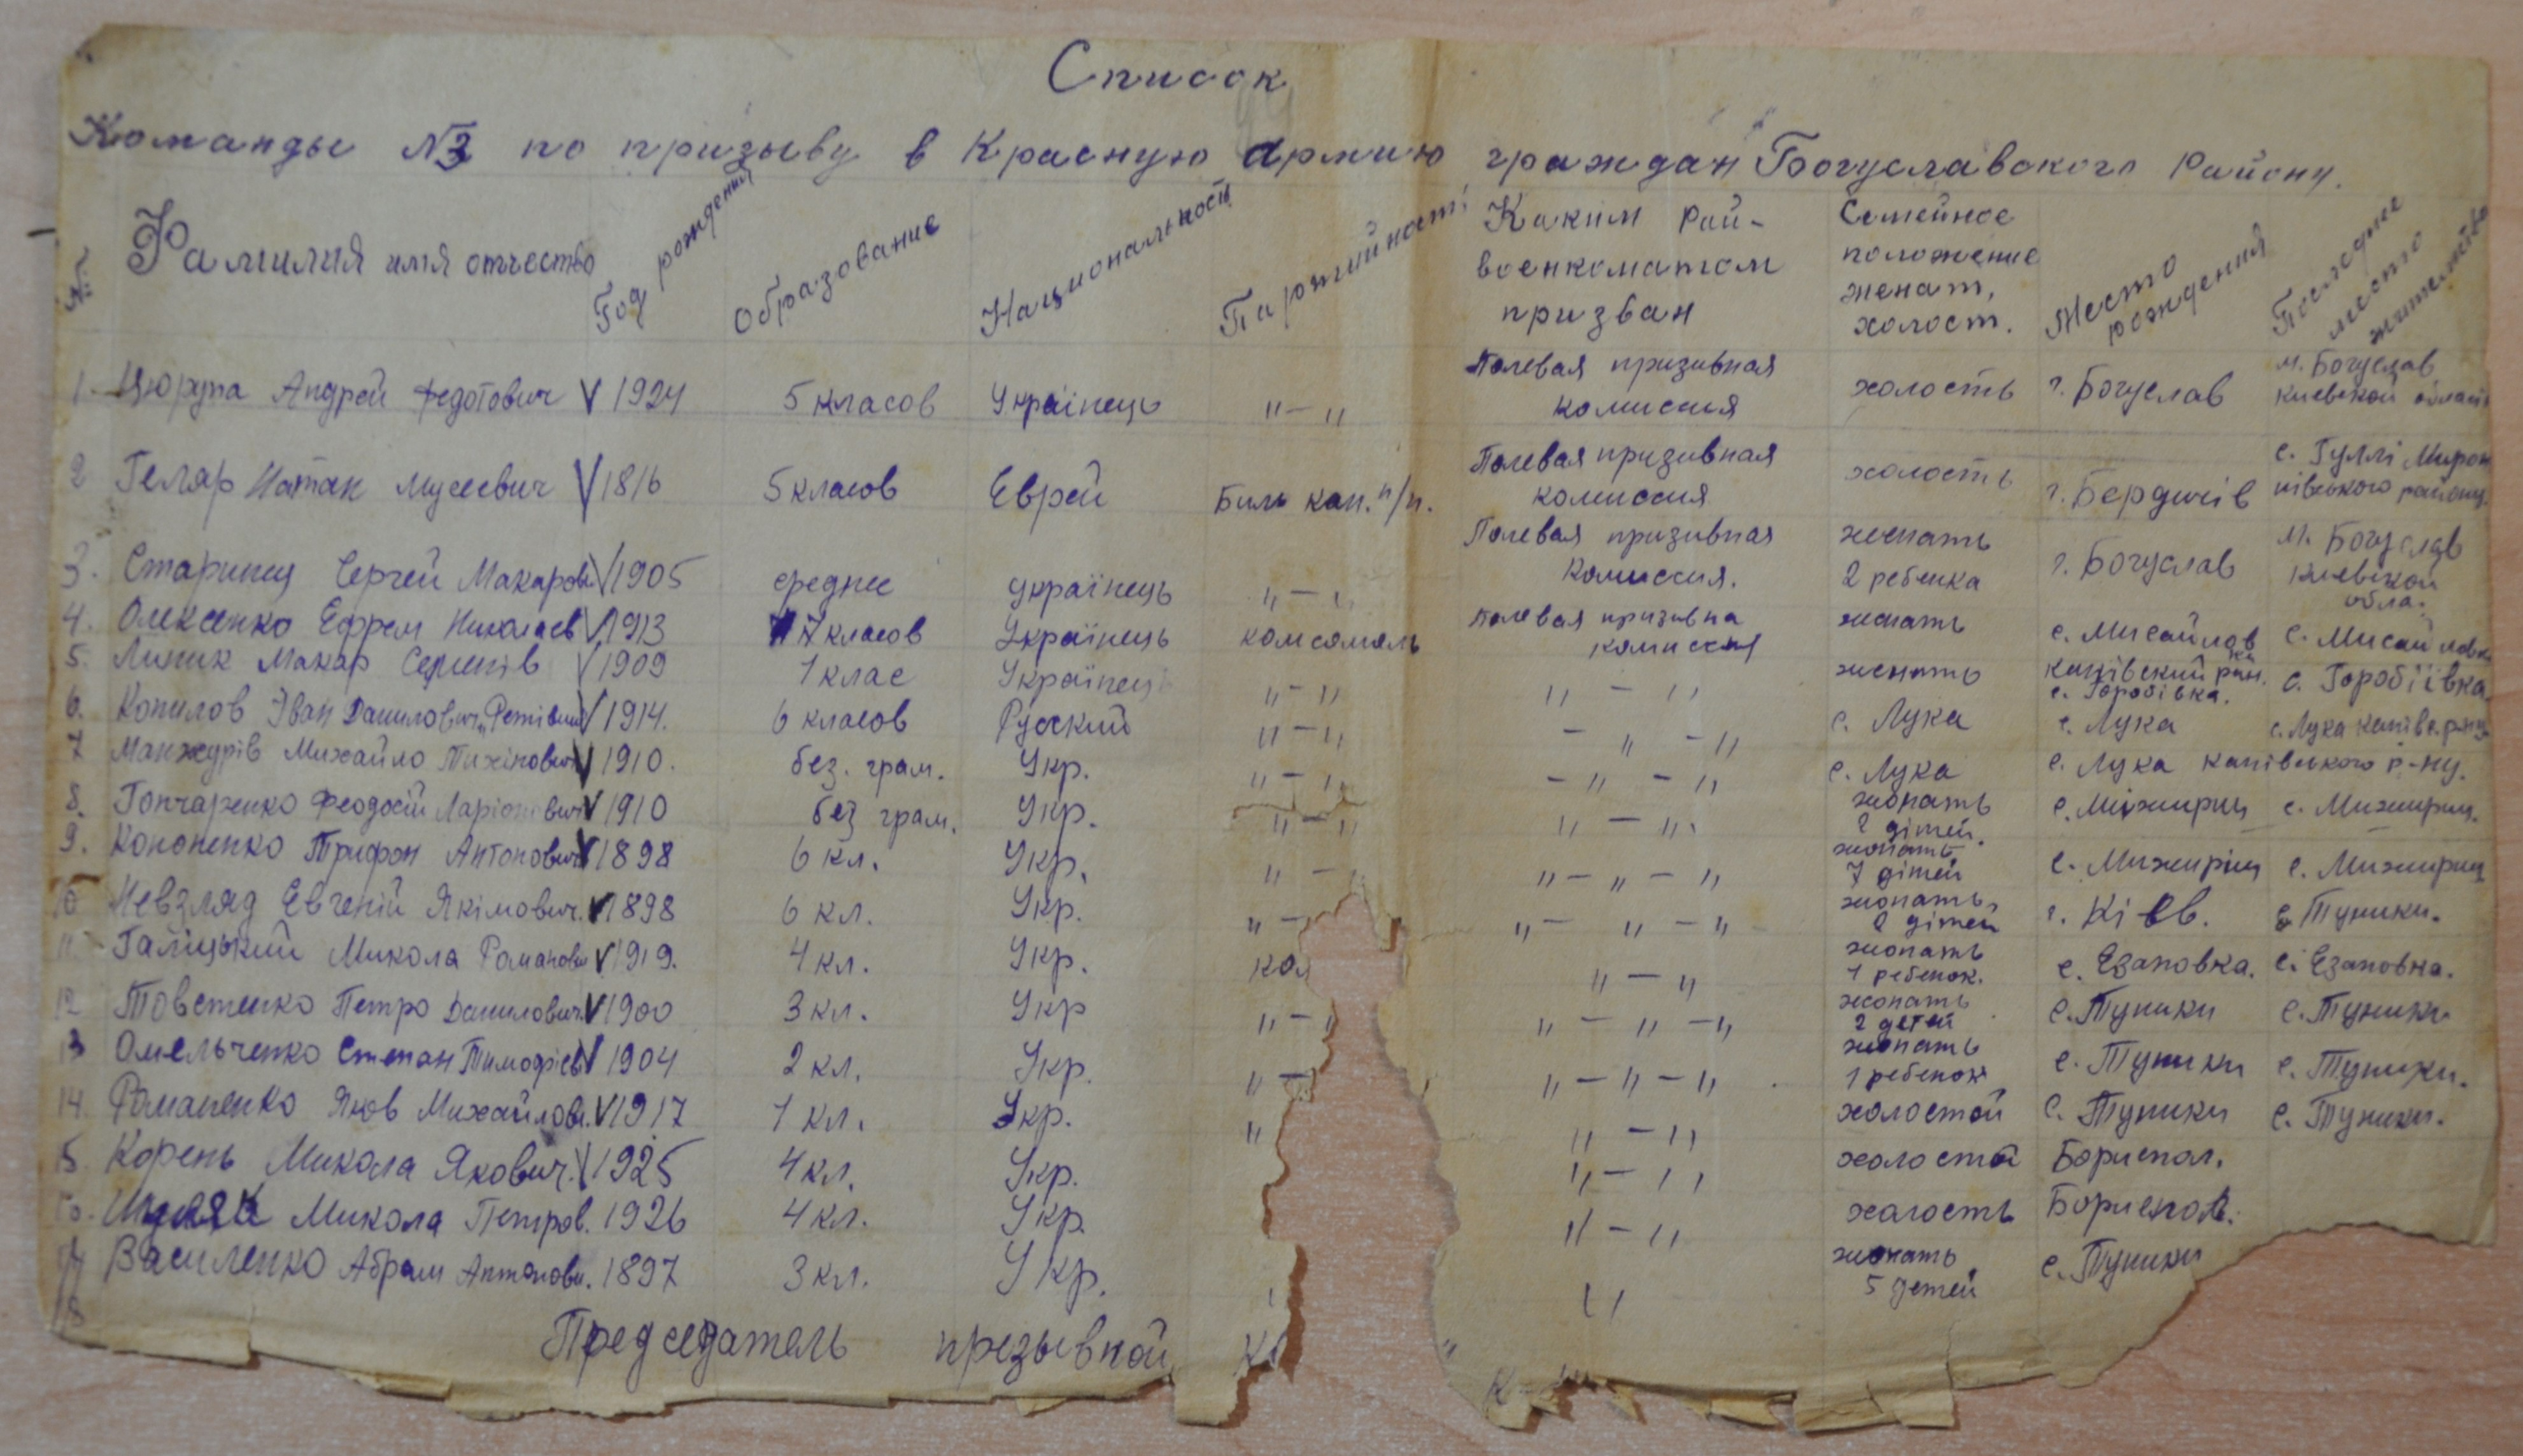 Список
Команды №3 по призыву в Красную армию граждан Богуславского Району.
№ Фамилия имя отчество Год рождения Образование Национальность Партийность Каким Рай-военкоматом призван Семейное положение женат, холост. Место рождения Последнее место жительства
1 Цюрупа Андрей Федотович V 1924 5 класов Украінець "—" Полевая призивная комиссия холость г. Богуслав м. Богуслав Киевской област
2 Геляр Натан Мусеевич V 1816 5 класов Еврей Биль кан. п/п. Полевая призивная комиссия холость г. Бердичів с. Гуллі Мирон нівського району.
3. Старинец Сергей Макаров V 1905 среднее українець "—" Полевая призивная комиссия. женать 2 ребенка г. Богуслав м. Богуслав Киевской обла.
4. Олексенко Ефрем Николаев V 1913 7 класов Українець комсомоль Полевая призивна комиссия женать с. Мисайловка с. Мисайловк
5. Линик Макар Семенів V 1909 1 клас Українець "—" "—" женать Канівский ран. с. Горобівка. с. Горобіївка.
6. Копилов Іван Данилович V 1914. 6 класов Руский "—" — " —" с. Лука с. Лука с. Лука Канівс. р-ну
7 Манжурів Михайло Тихінович V 1910. без. грам. Укр. "—" —" —" с. Лука с. Лука канівського р-ну.
8. Гончаренко Феодосій Ларіонович V 1910 без грам. Укр. "—" "—" жонать 2 дітей. с. Міжирич с. Мижирич.
9. Кононенко Трифон Антонович V 1898 6 кл. Укр. "— "—"—" жонать 7 дітей с. Мижиріч с. Мижирич
10 Невзляд Евгеній Якімович. V 1898 6 кл. Укр. "— "—"—" жонать, 2 дітей г. Кіев. с. Туники.
11 Галіцький Микола Романови V 1919. 4 кл. Укр. ком "—" жонать 1 ребенок. с. Езаповка. с. Езаповка.
12 Товстенко Петро Данилович. V 1900 3 кл. Укр "—" "—"—" жонать 2 детей с. Туники с. Туники
13 Омельченко Степан Тимофієв V 1904 2 кл. Укр. "— "—"—" жонать 1 ребенок с. Туники с. Туники.
14 Романенко Яков Михайлов. V 1917 1 кл. Укр. " "—" холостой с. Туники с. Туники.
15. Корень Микола Якович. V 1925 4 кл. Укр. "—" холостой Бориспол.
16. Микола Петров. 1926 4 кл. Укр. "—" холость Бориспол.
17 Василенко Абрам Антонови. 1897 3 кл. Укр. " жонать 5 детей с. Туники
18
Председатель презывной